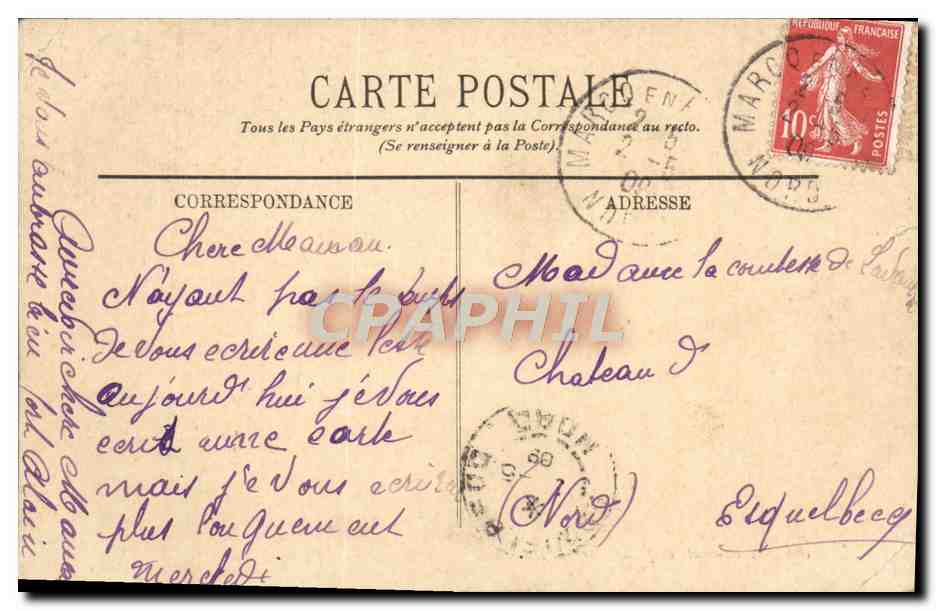 RÉPUBLIQUE FRANÇAISE
10
POSTES
CARTE POSTALE
Tous les Pays étrangers n'acceptent pas la Correspondance au recto.
(Se renseigner à la Poste).
MARCQ EN
2 - 5
NORD
MARCQ EN
NORD
CORRESPONDANCE
ADRESSE
Chere Maman.
N'ayant pas le temps
de vous ecrire une
aujourd hui je vous
ecrit une carte
mais je vous ecrirez
plus longuement
mercredi
Aurevoir chere Maman
Je vous enbrasse bien fort Alain
Madame la comtesse de
Chateau d
(Nord) Esquelbecq
NORD
CPAPHIL